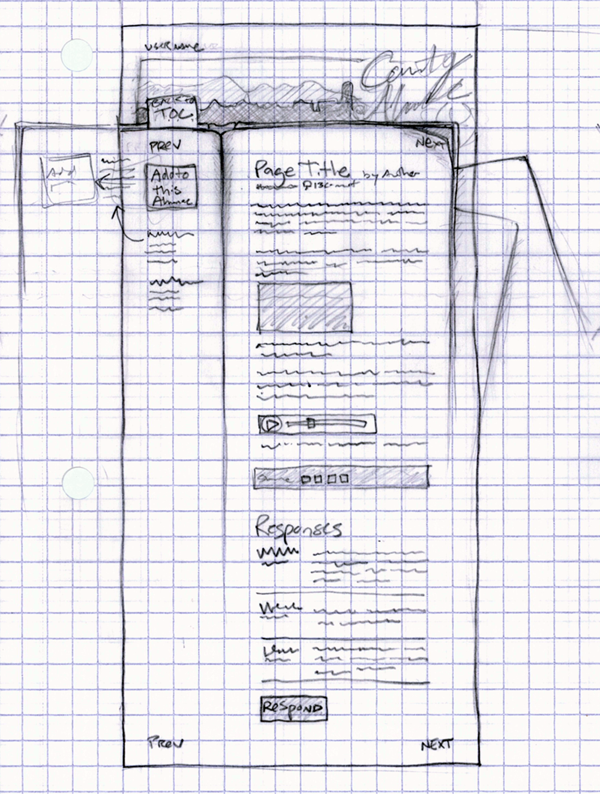 username
County
BACK TO
TOC
PREV
NEXT
Add
Add to
this
Almanac
Page Title by Author
Responses
RESPOND
PREV
NEXT